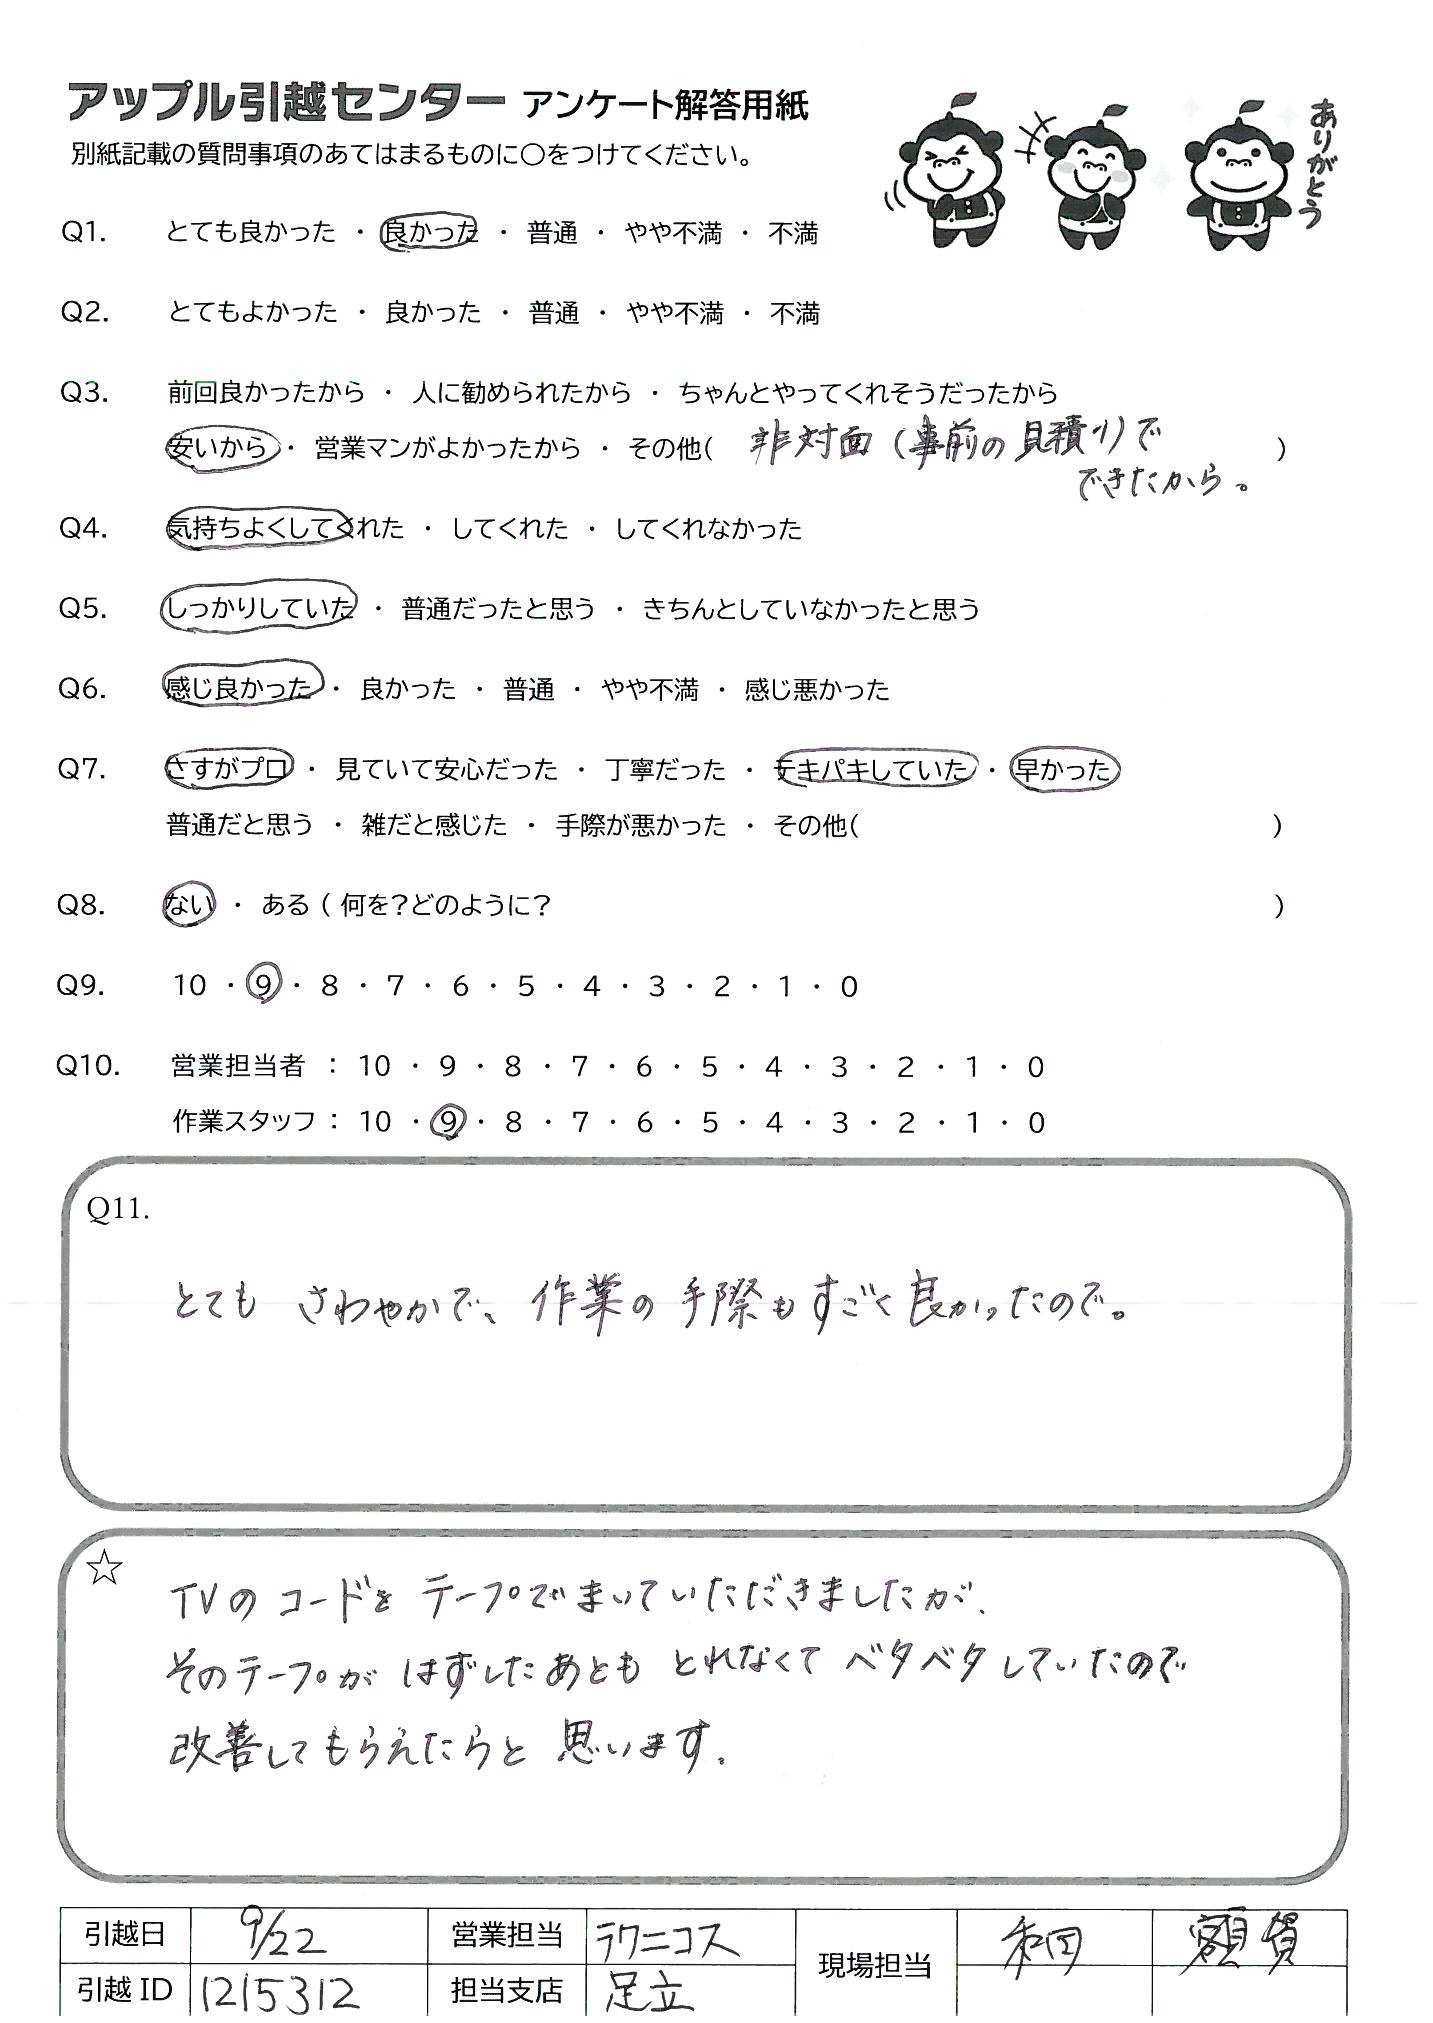 アップル引越センター アンケート解答用紙
別紙記載の質問事項のあてはまるものに○をつけてください。
ありがとう
Q1. とても良かった ・ 良かった ・ 普通 ・ やや不満 ・ 不満
Q2. とてもよかった ・ 良かった ・ 普通 ・ やや不満 ・ 不満
Q3. 前回良かったから ・ 人に勧められたから ・ ちゃんとやってくれそうだったから
安いから ・ 営業マンがよかったから ・ その他( 非対面(事前の見積り)で )
できたから。
Q4. 気持ちよくしてくれた ・ してくれた ・ してくれなかった
Q5. しっかりしていた ・ 普通だったと思う ・ きちんとしていなかったと思う
Q6. 感じ良かった ・ 良かった ・ 普通 ・ やや不満 ・ 感じ悪かった
Q7. さすがプロ ・ 見ていて安心だった ・ 丁寧だった ・ テキパキしていた ・ 早かった
普通だと思う ・ 雑だと感じた ・ 手際が悪かった ・ その他( )
Q8. ない ・ ある ( 何を?どのように? )
Q9. 10 ・ 9 ・ 8 ・ 7 ・ 6 ・ 5 ・ 4 ・ 3 ・ 2 ・ 1 ・ 0
Q10. 営業担当者 : 10 ・ 9 ・ 8 ・ 7 ・ 6 ・ 5 ・ 4 ・ 3 ・ 2 ・ 1 ・ 0
作業スタッフ : 10 ・ 9 ・ 8 ・ 7 ・ 6 ・ 5 ・ 4 ・ 3 ・ 2 ・ 1 ・ 0
Q11.
とても さわやかで、作業の手際もすごく良かったので。
☆
TVの コードを テープでまいていただきましたが、
そのテープが はずしたあとも とれなくて ベタベタしていたので
改善してもらえたらと 思います。
引越日 9/22 営業担当 テクニコス 現場担当 和田 額賀
引越ID 1215312 担当支店 足立